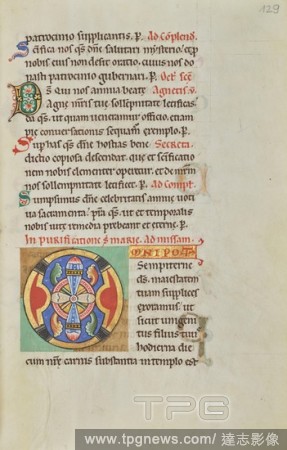 129
patrocinio supplicantis. P. Ad Cōplend.
Sc̄ifica nos q̄s dn̄e salutari mysterio. et p̄
nobis eius non desit oratio. cuius nos do
nasti patrocinio gubernari. P. Oct. sc̄e
Ds qui nos annua beatę Agnetis v.
agne m̄ris tuę sollempnitate lętificas
da q̄s. ut quam veneramur officio. etiam
pie conversationis sequam̄ exemplo. P.
Sup has q̄s dn̄e hostias bene Secreta.
dictio copiosa descendat. que et sc̄ificationem
nobis clementer operetur. et de
nos sollempnitate lętificet. P. Ad compl.
Sumpsimus dn̄e celebritatis annuę voti
va sacramenta. p̄sta q̄s. ut et temporalis
nobis vitę remedia prębeant et ęternę. P.
In purificatione s. marię. Ad missam.
OMNIPOTENS
Sempiterne
ds. maiestatem
tuam supplices
exoramus. ut
sicut unigeni
tus filius tuus
hodierna die
cum nr̄ę carnis substantia in templo est
TPG
www.tpgnews.com / 達志影像